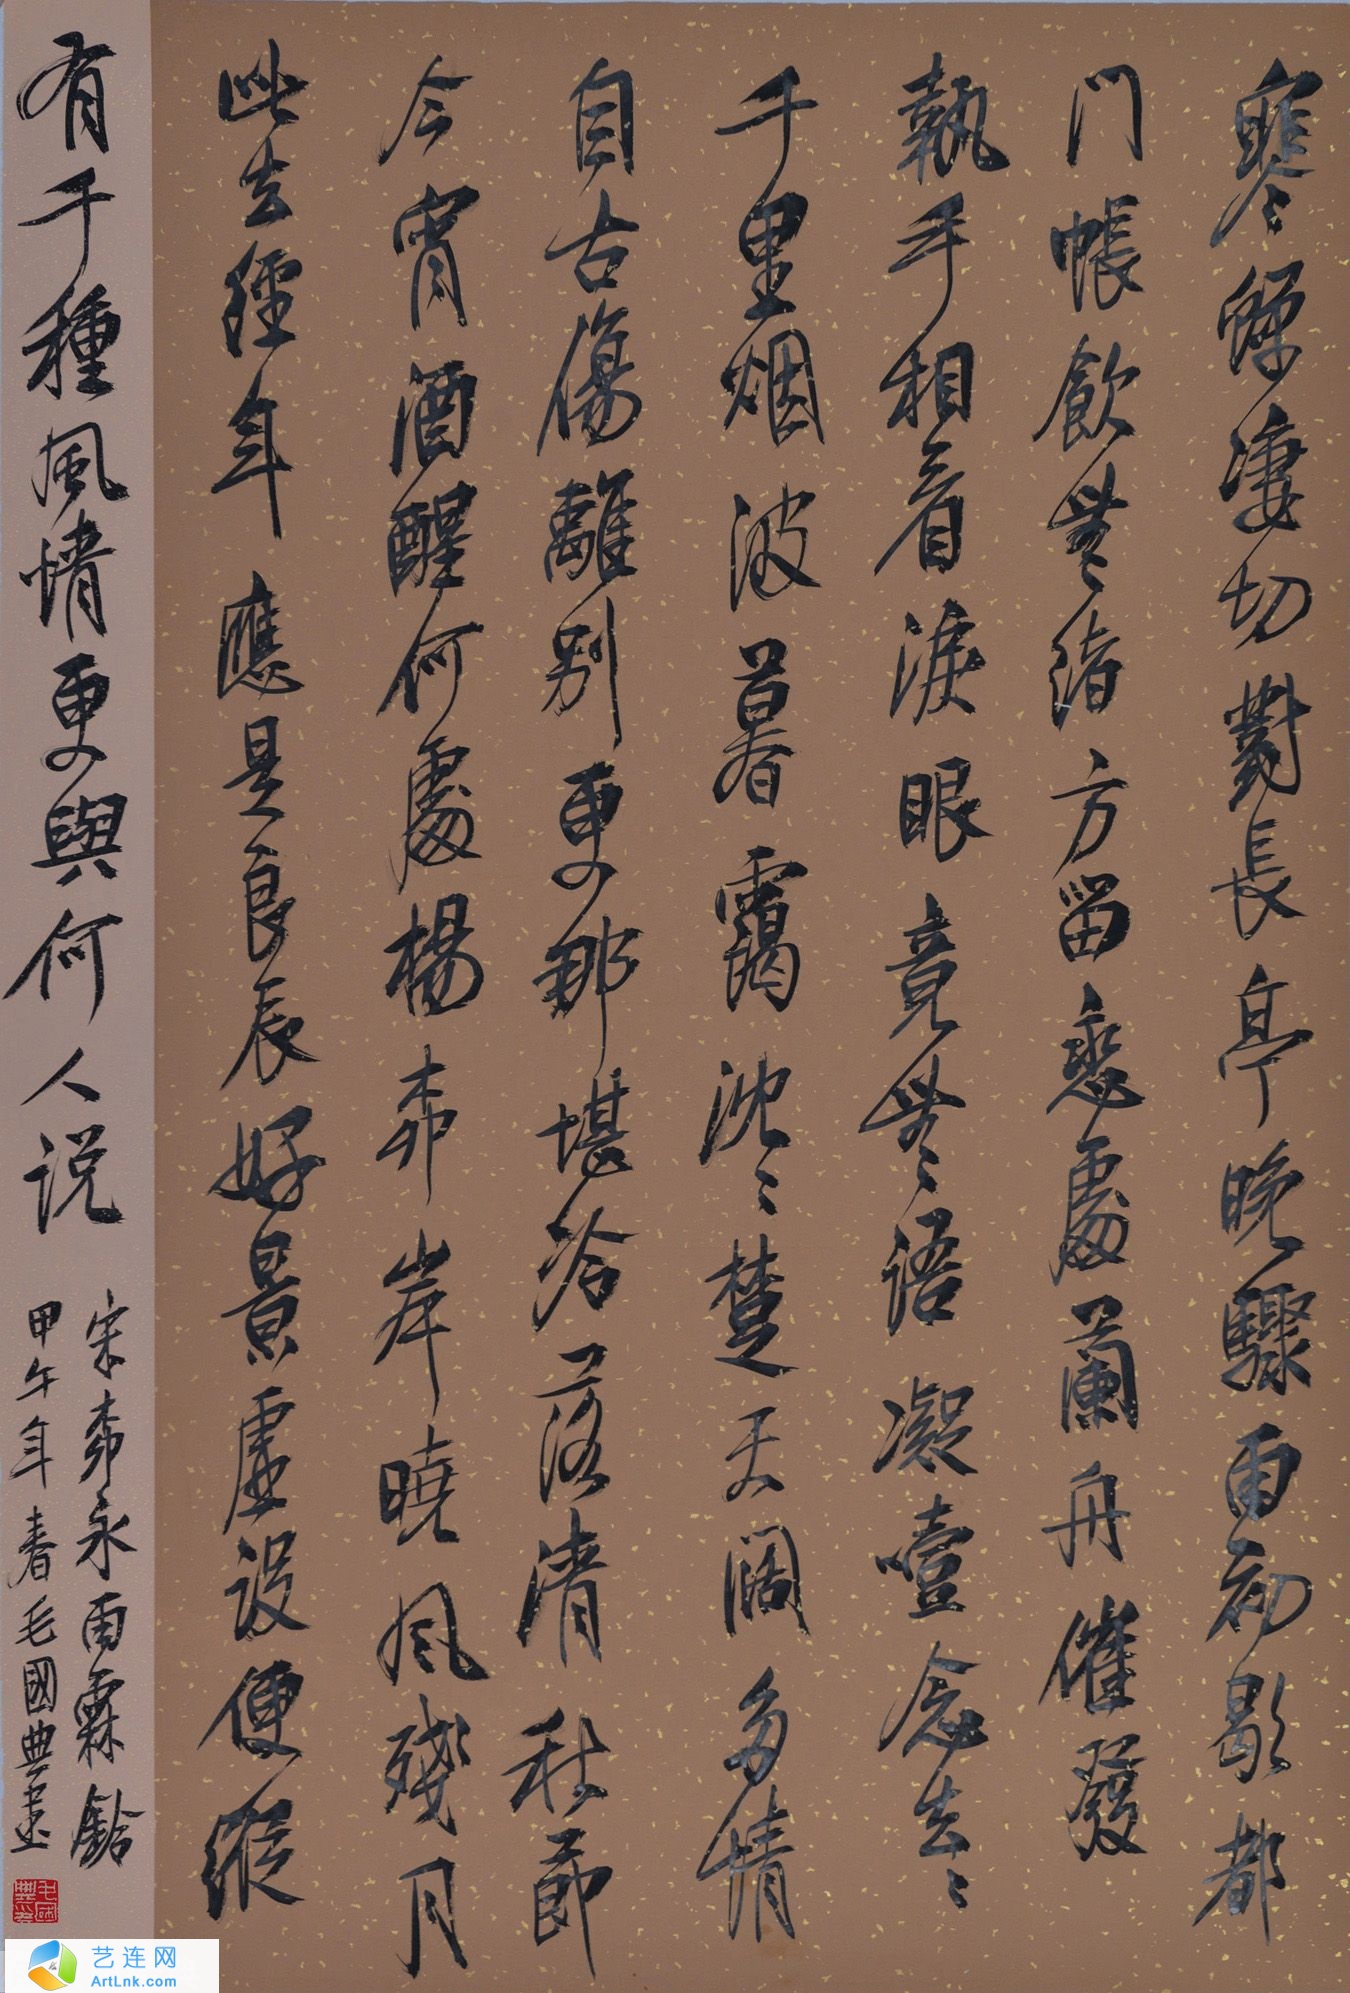 寒蟬凄切對長亭晚驟雨初歇都
門帳飲無緒方留戀處蘭舟催發
執手相看淚眼竟無語凝噎念去々
千里烟波暮靄沈々楚天闊多情
自古傷離別更那堪冷落清秋節
今宵酒醒何處楊柳岸曉風殘月
此去經年應是良辰好景虛設便縱
有千種風情更與何人说
宋柳永雨霖鈴
甲午年春毛國典書
艺连网
ArtLnk.com